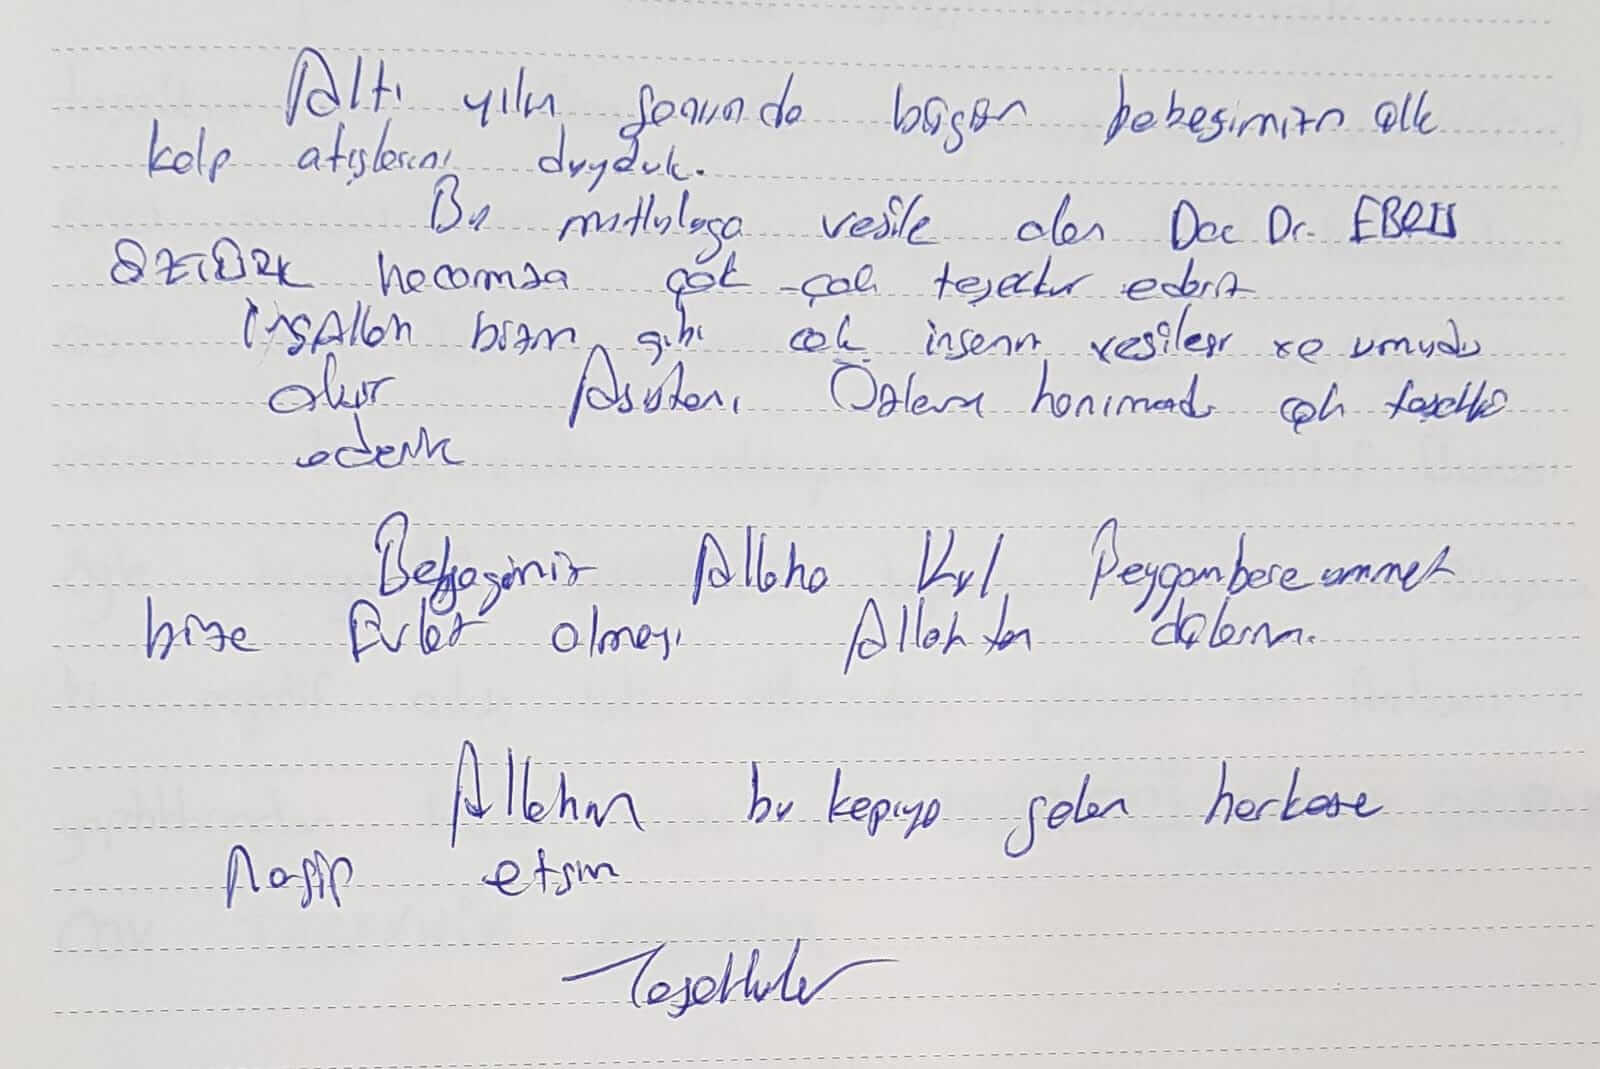 Altı yılın sonunda bugün bebeğimizin ilk
kalp atışlarını duyduk.
Bu mutluluğa vesile olan Doc Dr. EBRU
ÖZTÜRK hocamıza çok çok teşekkür ederiz
İnşAllah bizim gibi çok insanın vesilesi ve umudu
olur Asistanı Özlem hanımada çok teşekkür
ederik
Bebeğimiz Allaha Kul Peygambere ummet
bize Evlat olmayı Allahtan dilerim.
Allahım bu kapıya gelen herkese
Nasip etsin
Teşekkürler